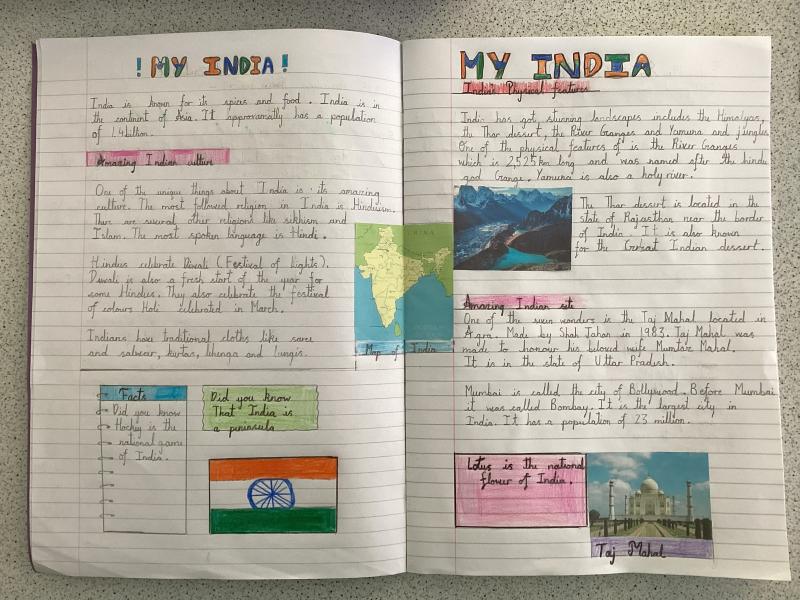 ! MY INDIA !
India is known for its spices and food. India is in
the continent of Asia. It approxamally has a population
of 1.4 billion.
Amazing Indian culture
One of the unique things about India is its amazing
culture. The most followed religion in India is Hinduism.
Ther are several other religions like sikhism and
Islam. The most spoken language is Hindi.
Hindus celebrate Diwali (Festival of lights).
Diwali is also a fresh start of the year for
some Hindus. They also celebrate the festival
of colours Holi celebrated in March.
Indians have traditional cloths like saree
and salwear, kurtas, lehenga and lungis.
CHINA
Map of India
Facts
Did you know
Hockey is the
national game
of India.
Did you know
That India is
a peninsula
MY INDIA
Indian Physical features
India has got stunning landscapes includes the Himalyas,
the Thar dessert, the River Granges and Yamuna and jungles
One of the physical features of is the River Granges
which is 2,525km long and was named after the hindu
god Grange. Yamuna is also a holy river.
The Thar dessert is located in the
state of Rajasthan near the border
of India. It is also known
for the Indian dessert.
Amazing Indian site
One of the seven wonders is the Taj Mahal located in
Agra. Made by Shah Jahan in 1983. Taj Mahal was
made to honour his beloved wife Mumtaz Mahal.
It is in the state of Uttar Pradesh.
Mumbai is called the city of Bollywood. Before Mumbai
it was called Bombay. It is the largest city in
India. It has a population of 23 million.
Lotus is the national
flower of India.
Taj Mahal